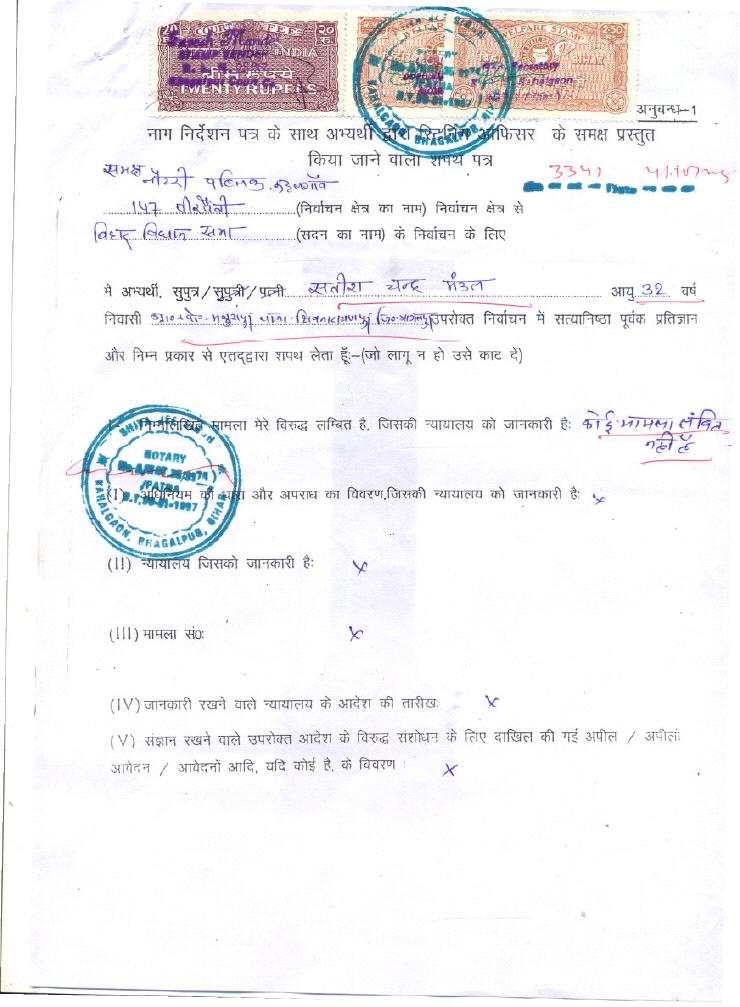 20 COURT FEE 20
INDIA
बीस रुपये
TWENTY RUPEES
WELFARE STAMP
2.50
BIHAR
अनुबन्ध-1
नाम निर्देशन पत्र के साथ अभ्यर्थी द्वारा रिटर्निंग ऑफिसर के समक्ष प्रस्तुत
किया जाने वाला शपथ पत्र
समक्ष नोटरी पब्लिक, कहलगाँव
3341
147 पीरपैंती (निर्वाचन क्षेत्र का नाम) निर्वाचन क्षेत्र से
विहार विधान सभा (सदन का नाम) के निर्वाचन के लिए
मे अभ्यर्थी, सुपुत्र/सुपुत्री/पत्नी सतीश चन्द्र मंडल आयु 32 वर्ष
निवासी थाना-शिवनारायणपुर उपरोक्त निर्वाचन में सत्यानिष्ठा पूर्वक प्रतिज्ञान
और निम्न प्रकार से एतद्द्वारा शपथ लेता हूँ:-(जो लागू न हो उसे काट दें)
निम्नलिखित मामला मेरे विरुद्ध लम्बित है, जिसकी न्यायालय को जानकारी है: कोई मामला लंबित
नहीं है
NOTARY
PATNA
KAHALGAON, BHAGALPUR, BIHAR
(I) अधिनियम की धारा और अपराध का विवरण,जिसकी न्यायालय को जानकारी है: x
(II) न्यायालय जिसको जानकारी है: x
(III) मामला सं०: x
(IV) जानकारी रखने वाले न्यायालय के आदेश की तारीख: x
(V) संज्ञान रखने वाले उपरोक्त आदेश के विरुद्ध संशोधन के लिए दाखिल की गई अपील / अपीलों
आवेदन / आवेदनों आदि, यदि कोई है, के विवरण : x